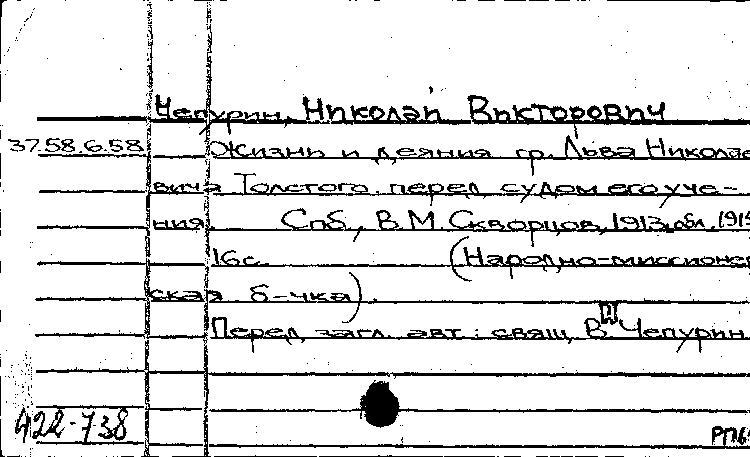 Чепурин, Николай Викторович
37.58.6.58 Жизнь и деяния гр. Льва Николае
вича Толстого перед судом его уче-
ния. Спб., В.М. Скворцов, 1913, обл. 191
16с. (Народно-миссионер
ская б-чка).
Перед загл. авт.: свящ. В. Чепурин
Н
422-738